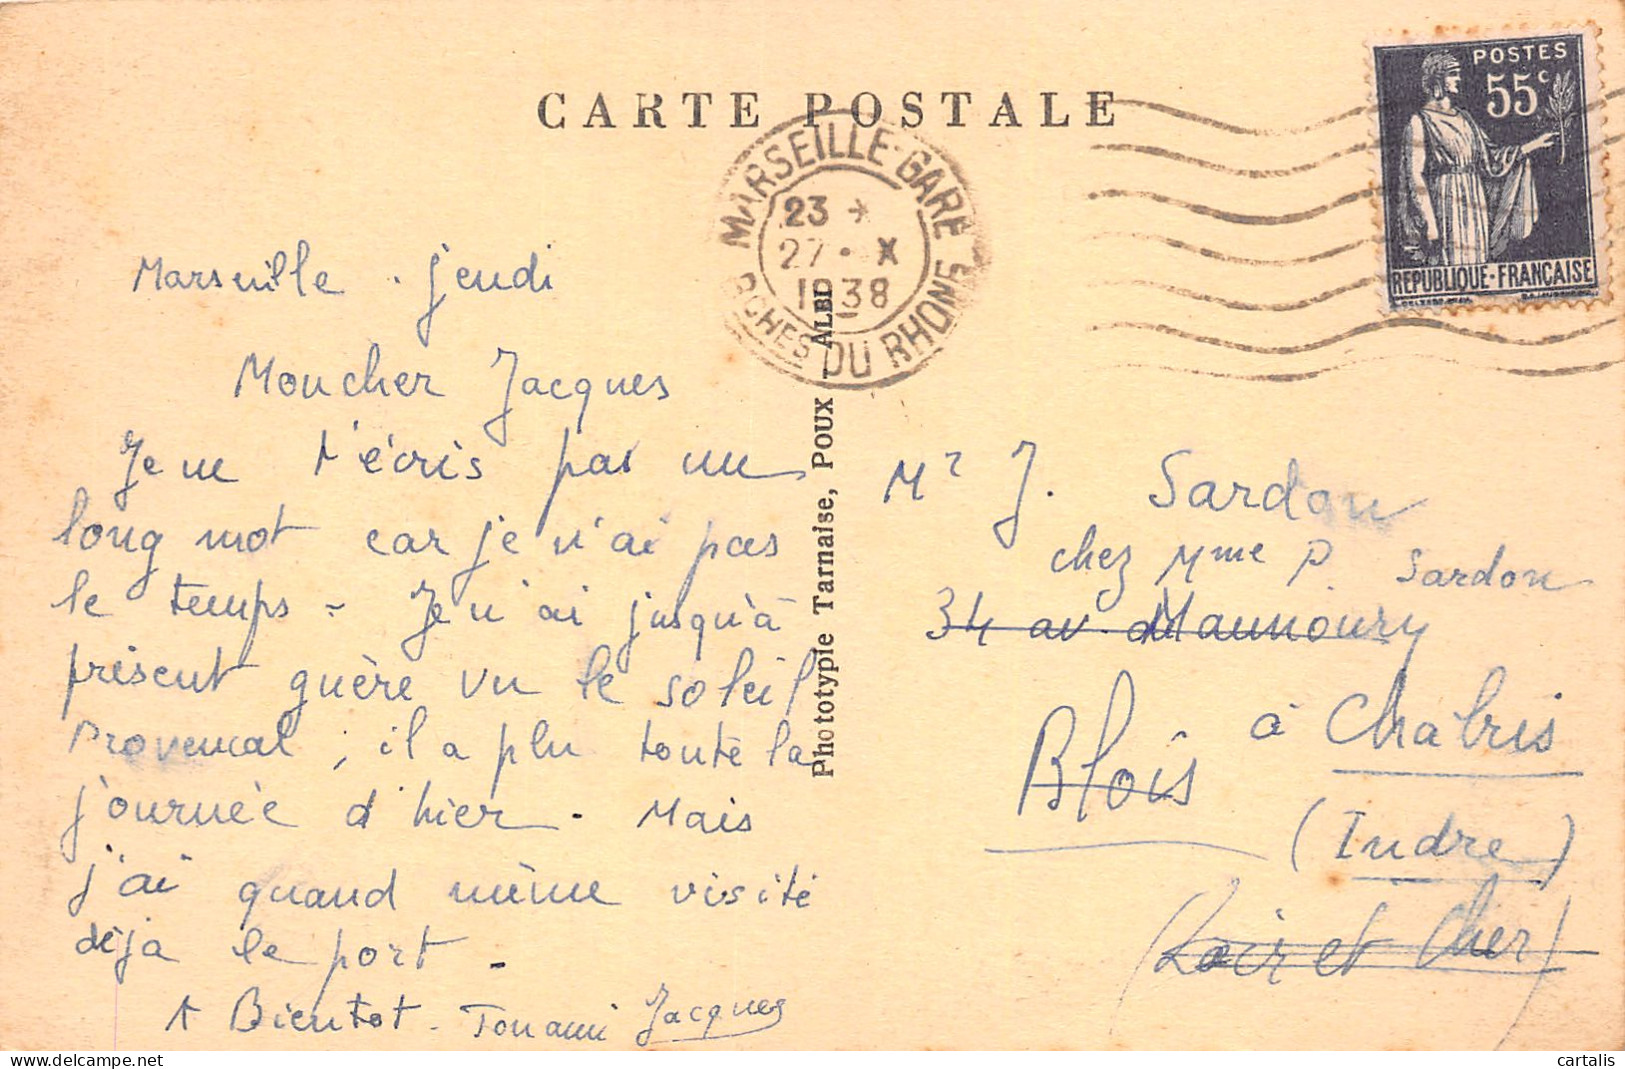 CARTE POSTALE
POSTES
55c
REPUBLIQUE-FRANCAISE
MARSEILLE-GARE
23 *
27 · X
1938
BCHES DU RHONE
Marseille . jeudi
Moucher Jacques
Je ne t'écris pas un
long mot car je n'ai pas
le temps - Je n'ai jusqu'à
présent guère vu le soleil
Provencal ; il a plu toute la
journée d'hier. Mais
j'ai quand même visité
déja le port -
A Bientot - Ton ami Jacques
Phototypie Tarnaise, POUX - ALBI
Mr J. Sardou
chez Mme P. Sardou
34 av. Maunoury
Blois à Chabris
(Indre)
(Loir et Cher)
cartalis